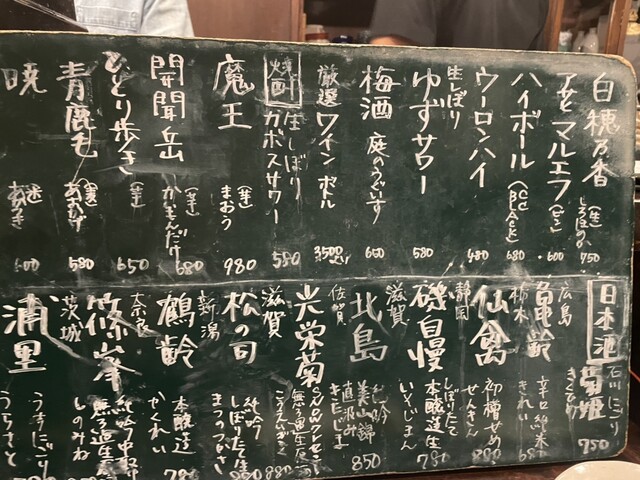 白穂乃香 (生) しろほのか 750
アサヒマルエフ (ビン) 600
ハイボール 680
ウーロンハイ 480
生しぼり
ゆずサワー 580
梅酒 庭のうぐいす 600
厳選ワイン ボトル 3500
焼酎
生しぼり
カボスサワー 580
魔王 (芋) まおう 980
開聞岳 (芋) かいもんだけ 680
ひとり歩き (芋) 650
青鹿毛 (麦) あおかげ 580
暁 あかつき 600
日本酒
石川 にごり
菊姫 きくひめ 750
広島
亀齢 辛口純米 きれい 680
栃木
仙禽 初槽せめ せんきん 880
静岡
磯自慢 しぼりたて 本醸造生 いそじまん 780
滋賀
北島 純吟 美山錦 直汲み きたじま 850
佐賀
光栄菊 無ろ過生原 こうえいぎく 880
滋賀
松の司 純吟 しぼりたて生 まつのつかさ
新潟
鶴齢 本醸造 かくれい 780
奈良
篠峯 純吟中取り 無ろ過生 しのみね
茨城
浦里 うすにごり うらさと